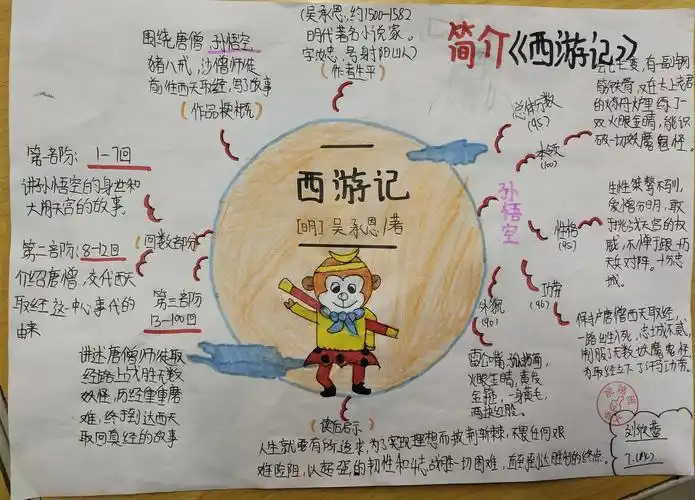 简介《西游记》
(吴承恩,约1500-1582
明代著名小说家。
字汝忠,号射阳山人)
(作者生平)
围绕唐僧,孙悟空,
猪八戒,沙僧师徒
前往西天取经,写了故事
(作品梗概)
第一部份: 1-7回
讲孙悟空的身世和
大闹天宫的故事。
第二部份:8-12回
介绍唐僧,交代西天
取经这一中心事件的
由来
(回数部分)
第三部份
13-100回
讲述唐僧师徒取
经路上战胜无数
妖怪,历经重重磨
难,终于到达西天
取回真经的故事
西游记
[明] 吴承恩/著
孙悟空
总分数
(95)
本领
(100)
有一副钢
筋铁骨
双火眼金睛,能识
破一切妖魔鬼怪。
性格
(95)
生性桀骜不驯,
爱憎分明,敢
于挑战天宫的权
威,不惧于跟一切
天兵对阵。十分忠
诚。
功劳
(96)
保护唐僧西天取经,
一路出生入死,忠诚不贰,
制服了无数妖魔鬼怪
为取经立下了汗马功劳。
外貌
(90)
雷公嘴,孤拐面,
火眼金睛,黄发
金箍,一身黄毛,
两块红股。
(读后启示)
人生就要有所追求,为了实现理想而披荆斩棘,不畏任何艰
难险阻,以超强的韧性和斗志战胜一切困难,直至到达胜利的终点。